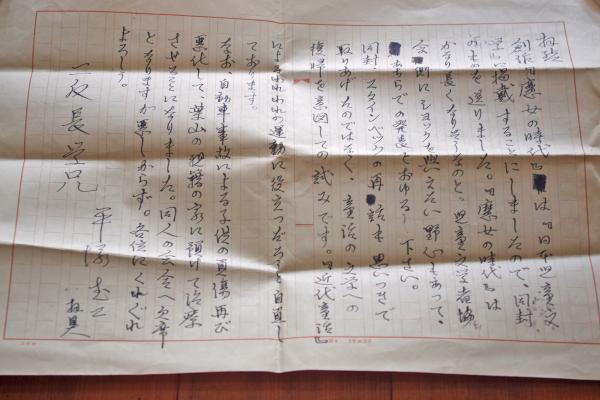 拝啓
創作『魔女の時代』は『日本児童文
学』に掲載することにしましたので、同封
のものを送りました。『魔女の時代』は
かなり長くなりそうなのと、児童文学者協
会側にショックを与えたい野心もあって、
あちらでの発表とおゆるし下さい。
同封、スタインベックの再話も思いつきで
取りあげたのではなく、童話の文学への
復帰を意図しての試みです。『近代童話』
によるわれわれの運動に役立つだろうと自負し
ております。
なお、自動車事故による子供の負傷再び
悪化して、葉山の の家に預けて治療
させることになりました。同人の会合へ欠席
となりますが悪しからず。各位にくれぐれ
よろしう。
拝具
長学兄